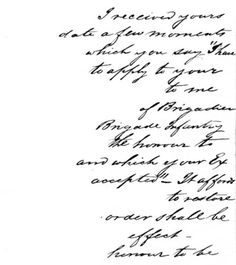 I received yours
date a few moments
which you say "I have
to apply to your
to me
of Brigadier
Brigade Infantry
the honour to
and which your Ex
accepted" - It affords
to restore
order shall be
effect -
honour to be